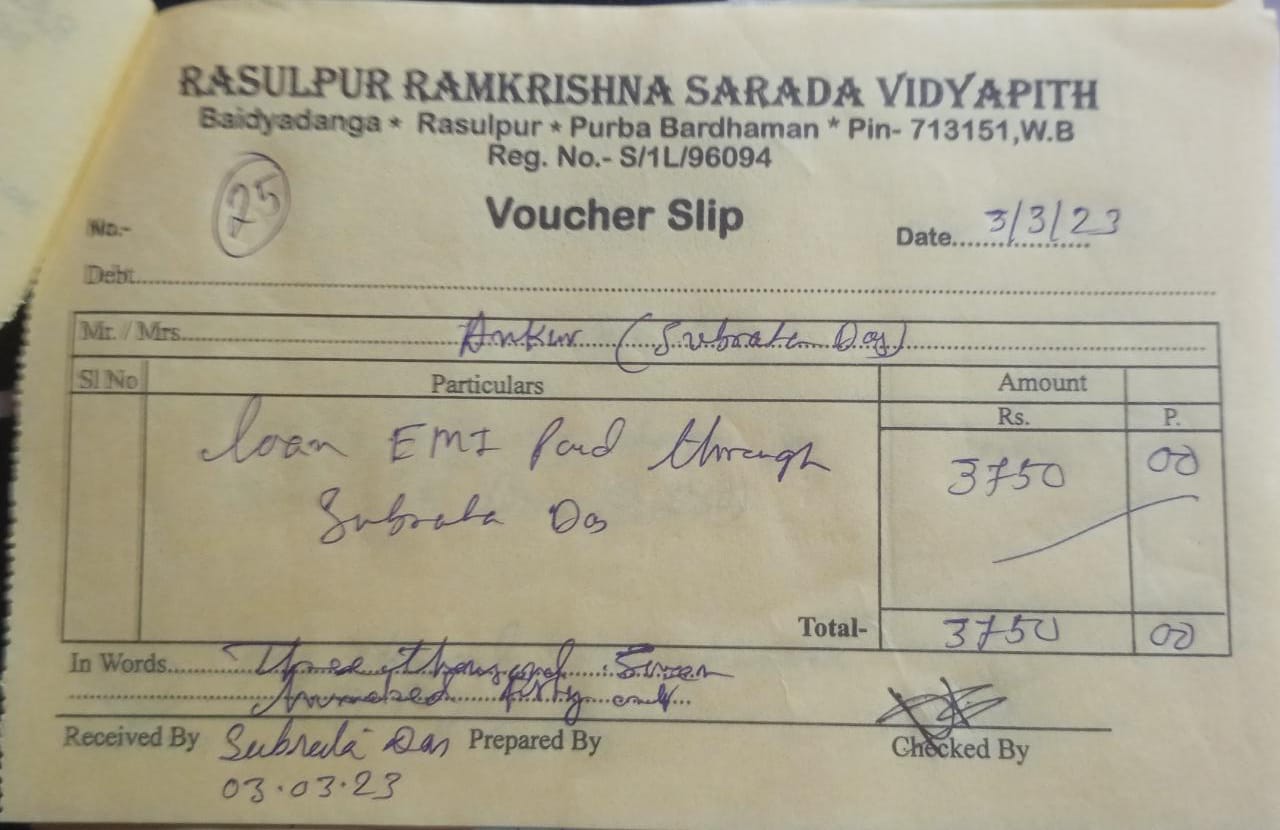 RASULPUR RAMKRISHNA SARADA VIDYAPITH
Baidyadanga * Rasulpur * Purba Bardhaman * Pin- 713151,W.B
Reg. No.- S/1L/96094
No.- 75 Voucher Slip Date 3/3/23
Debt
Mr. / Mrs. Ankur (Subrata Das)
Sl No Particulars Amount
Rs. P.
loan EMI Paid through 3750 00
Subrata Das
Total- 3750 00
In Words Three thousand Seven
hundred fifty only
Received By Subrata Das Prepared By Checked By
03.03.23